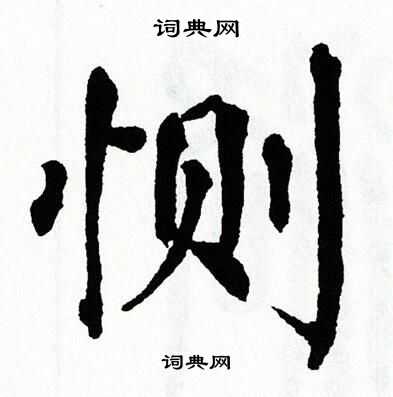 词典网
恻
词典网